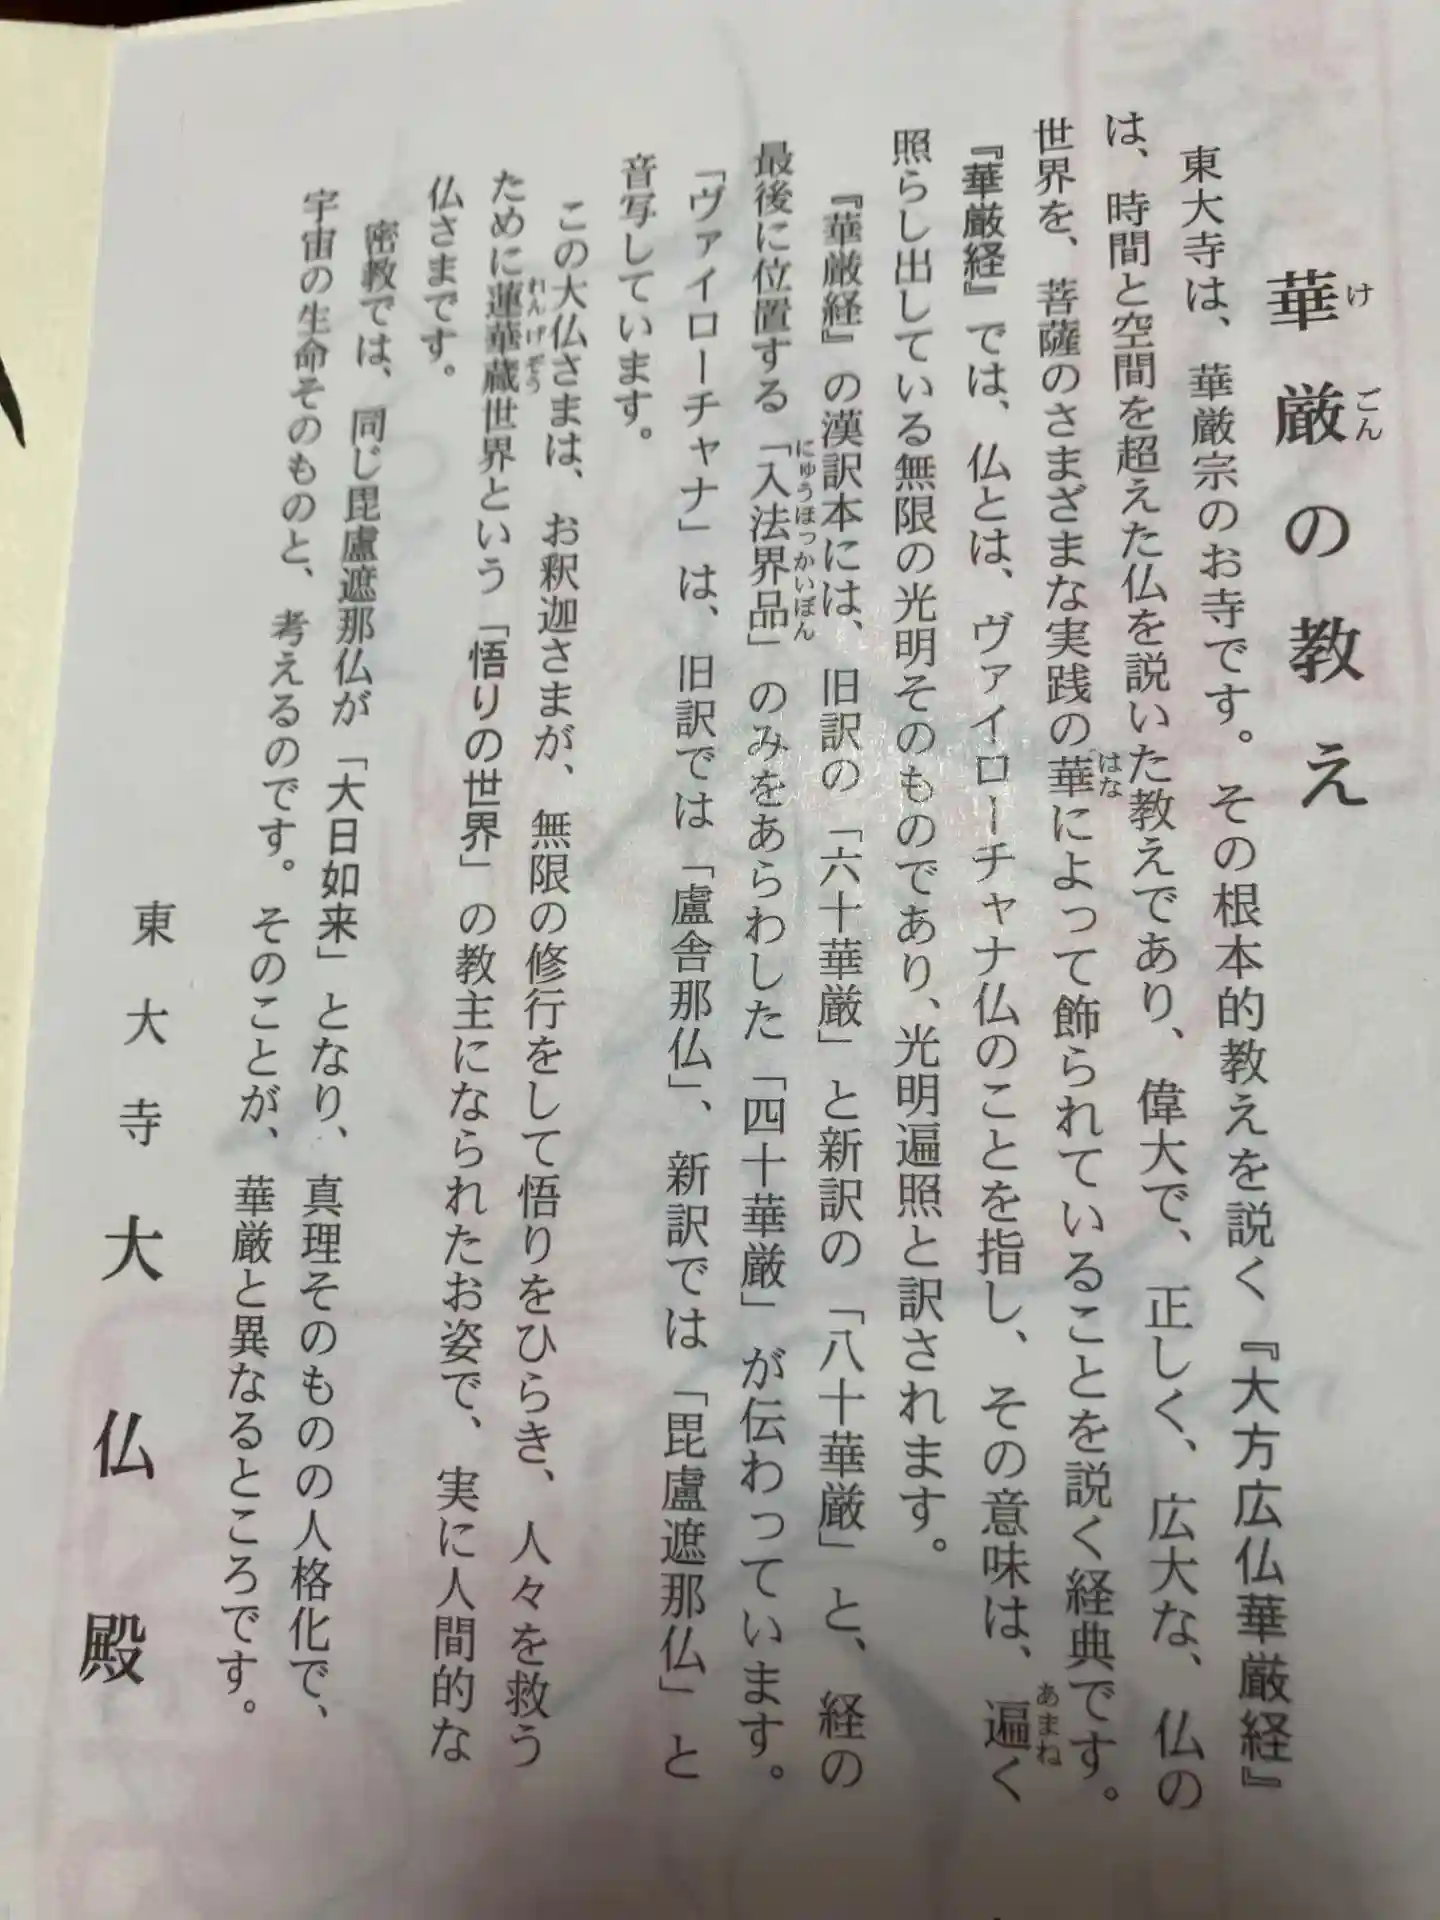 華厳の教え
東大寺は、華厳宗のお寺です。その根本的教えを説く『大方広仏華厳経』
は、時間と空間を超えた仏を説いた教えであり、偉大で、正しく、広大な、仏の
世界を、菩薩のさまざまな実践の華によって飾られていることを説く経典です。
『華厳経』では、仏とは、ヴァイローチャナ仏のことを指し、その意味は、遍く
照らし出している無限の光明そのものであり、光明遍照と訳されます。
『華厳経』の漢訳本には、旧訳の「六十華厳」と新訳の「八十華厳」と、経の
最後に位置する「入法界品」のみをあらわした「四十華厳」が伝わっています。
「ヴァイローチャナ」は、旧訳では「盧舎那仏」、新訳では「毘盧遮那仏」と
音写しています。
この大仏さまは、お釈迦さまが、無限の修行をして悟りをひらき、人々を救う
ために蓮華蔵世界という「悟りの世界」の教主になられたお姿で、実に人間的な
仏さまです。
密教では、同じ毘盧遮那仏が「大日如来」となり、真理そのものの人格化で、
宇宙の生命そのものと、考えるのです。そのことが、華厳と異なるところです。
東大寺大仏殿